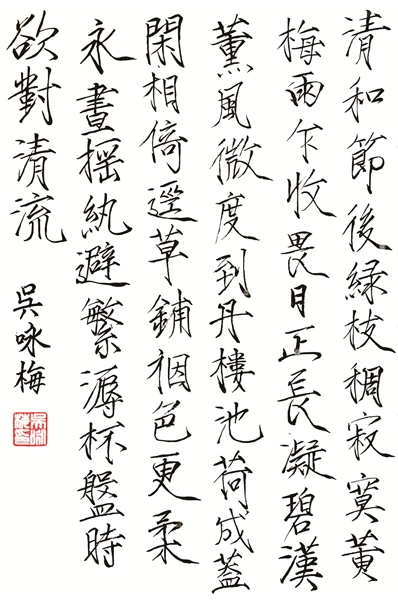 清和節後綠枝稠寂寞黄
梅雨乍收畏日正長凝碧漢
薫風微度到丹樓池荷成蓋
閑相倚逕草鋪裀色更柔
永晝揺紈避繁溽杯盤時
欲對清流
吳咏梅